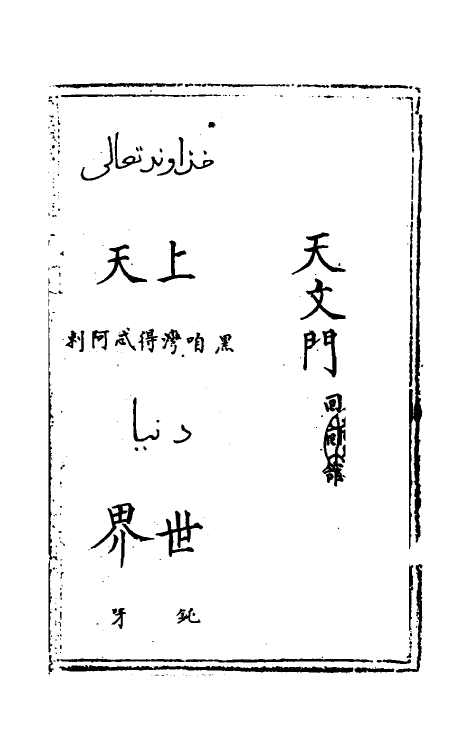 天文門
回回館
خداوند تعالی
上天
黑咱灣得忒阿剌
دنیا
世界
鈍牙